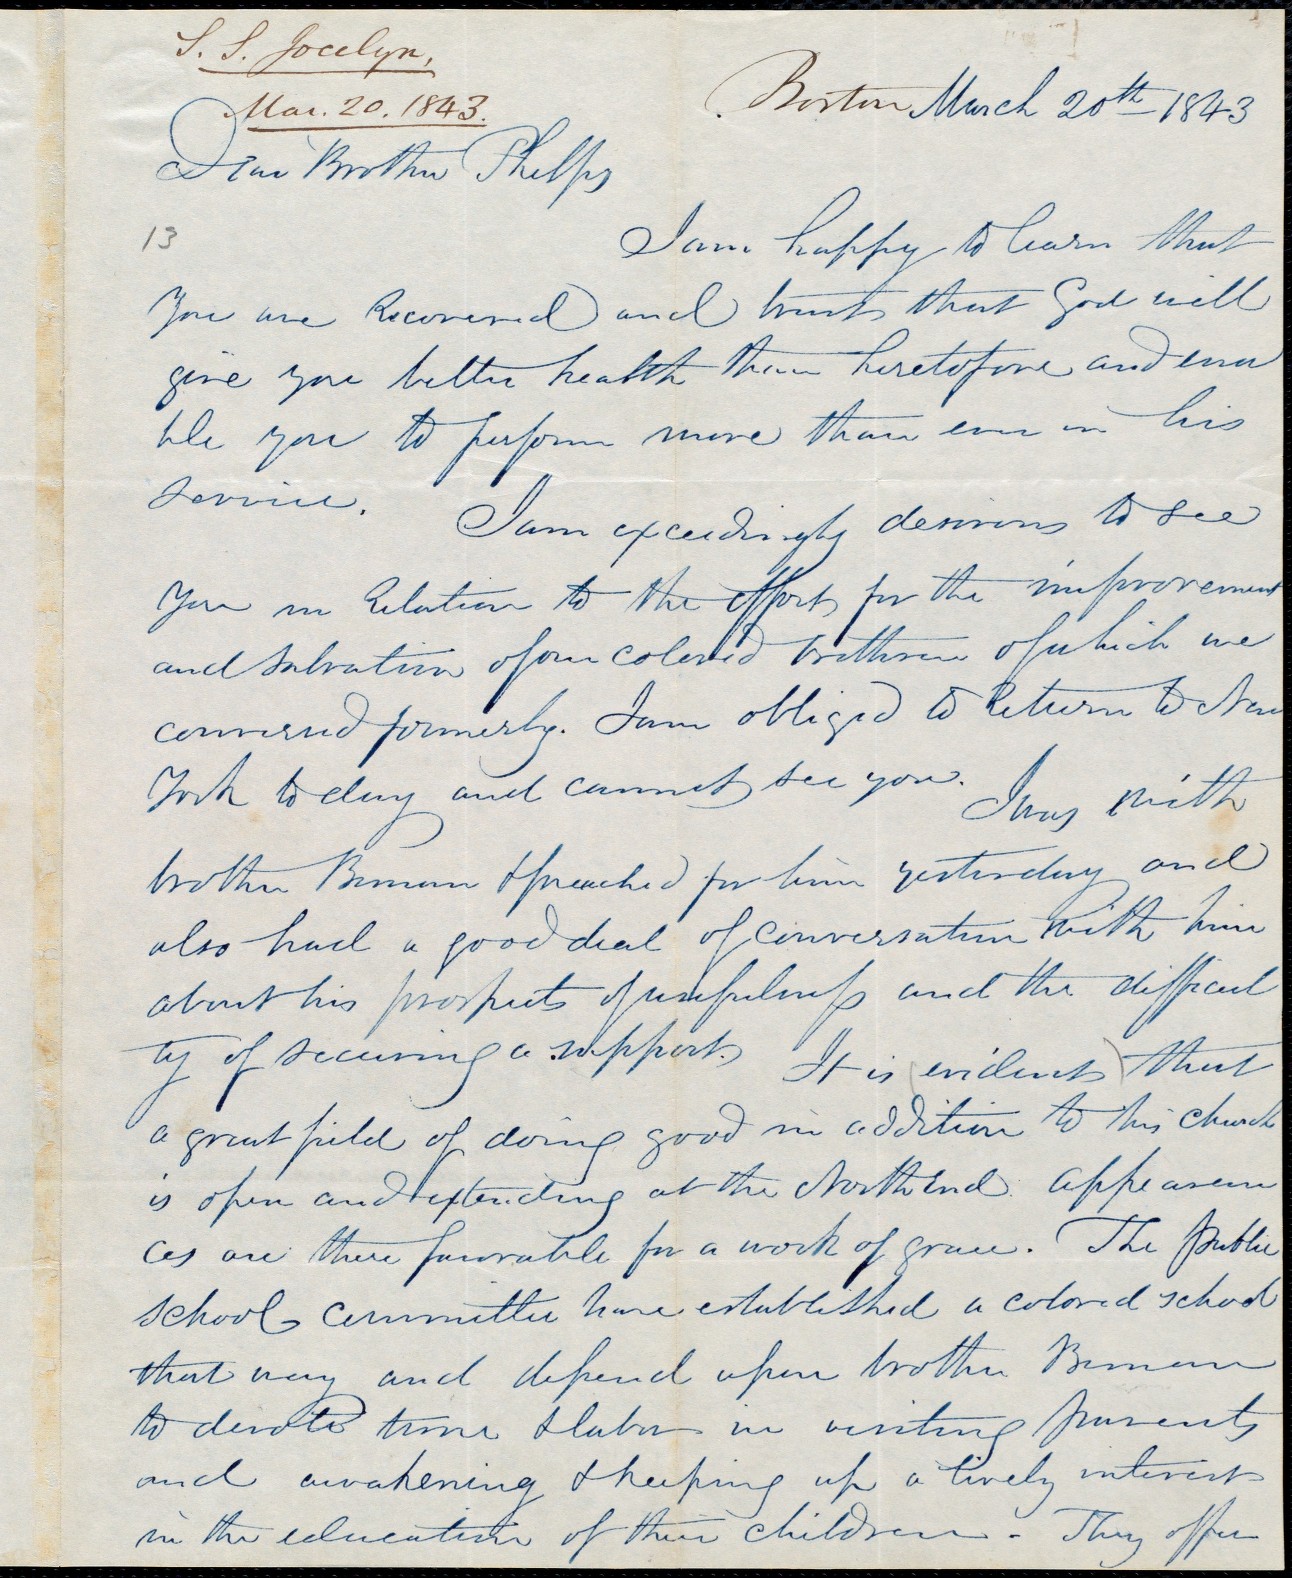 S. S. Jocelyn,
Mar. 20. 1843.
Boston March 20th 1843
Dear Brother Phelps
13
I am happy to learn that
You are Recovered and trust that God will
give you better health than heretofore and ena
ble you to perform more than ever in his
service.
I am exceedingly desirous to see
You in Relation to the effort for the improvement
and salvation of our colored brethren of which we
conversed formerly. I am obliged to Return to New
York to day and cannot see you.
I was with
brother Beman & preached for him yesterday and
also had a good deal of conversation with him
about his prospects of usefulness and the difficul
ty of securing a support.
It is evident that
a great field of doing good in addition to his church
is open and extending at the North End. appearan
ces are there favorable for a work of grace. The public
school committee have established a colored school
that way and depend upon brother Beman
to devote time & labor in visiting parents
and awakening & keeping up a lively interest
in the education of their children - They offer